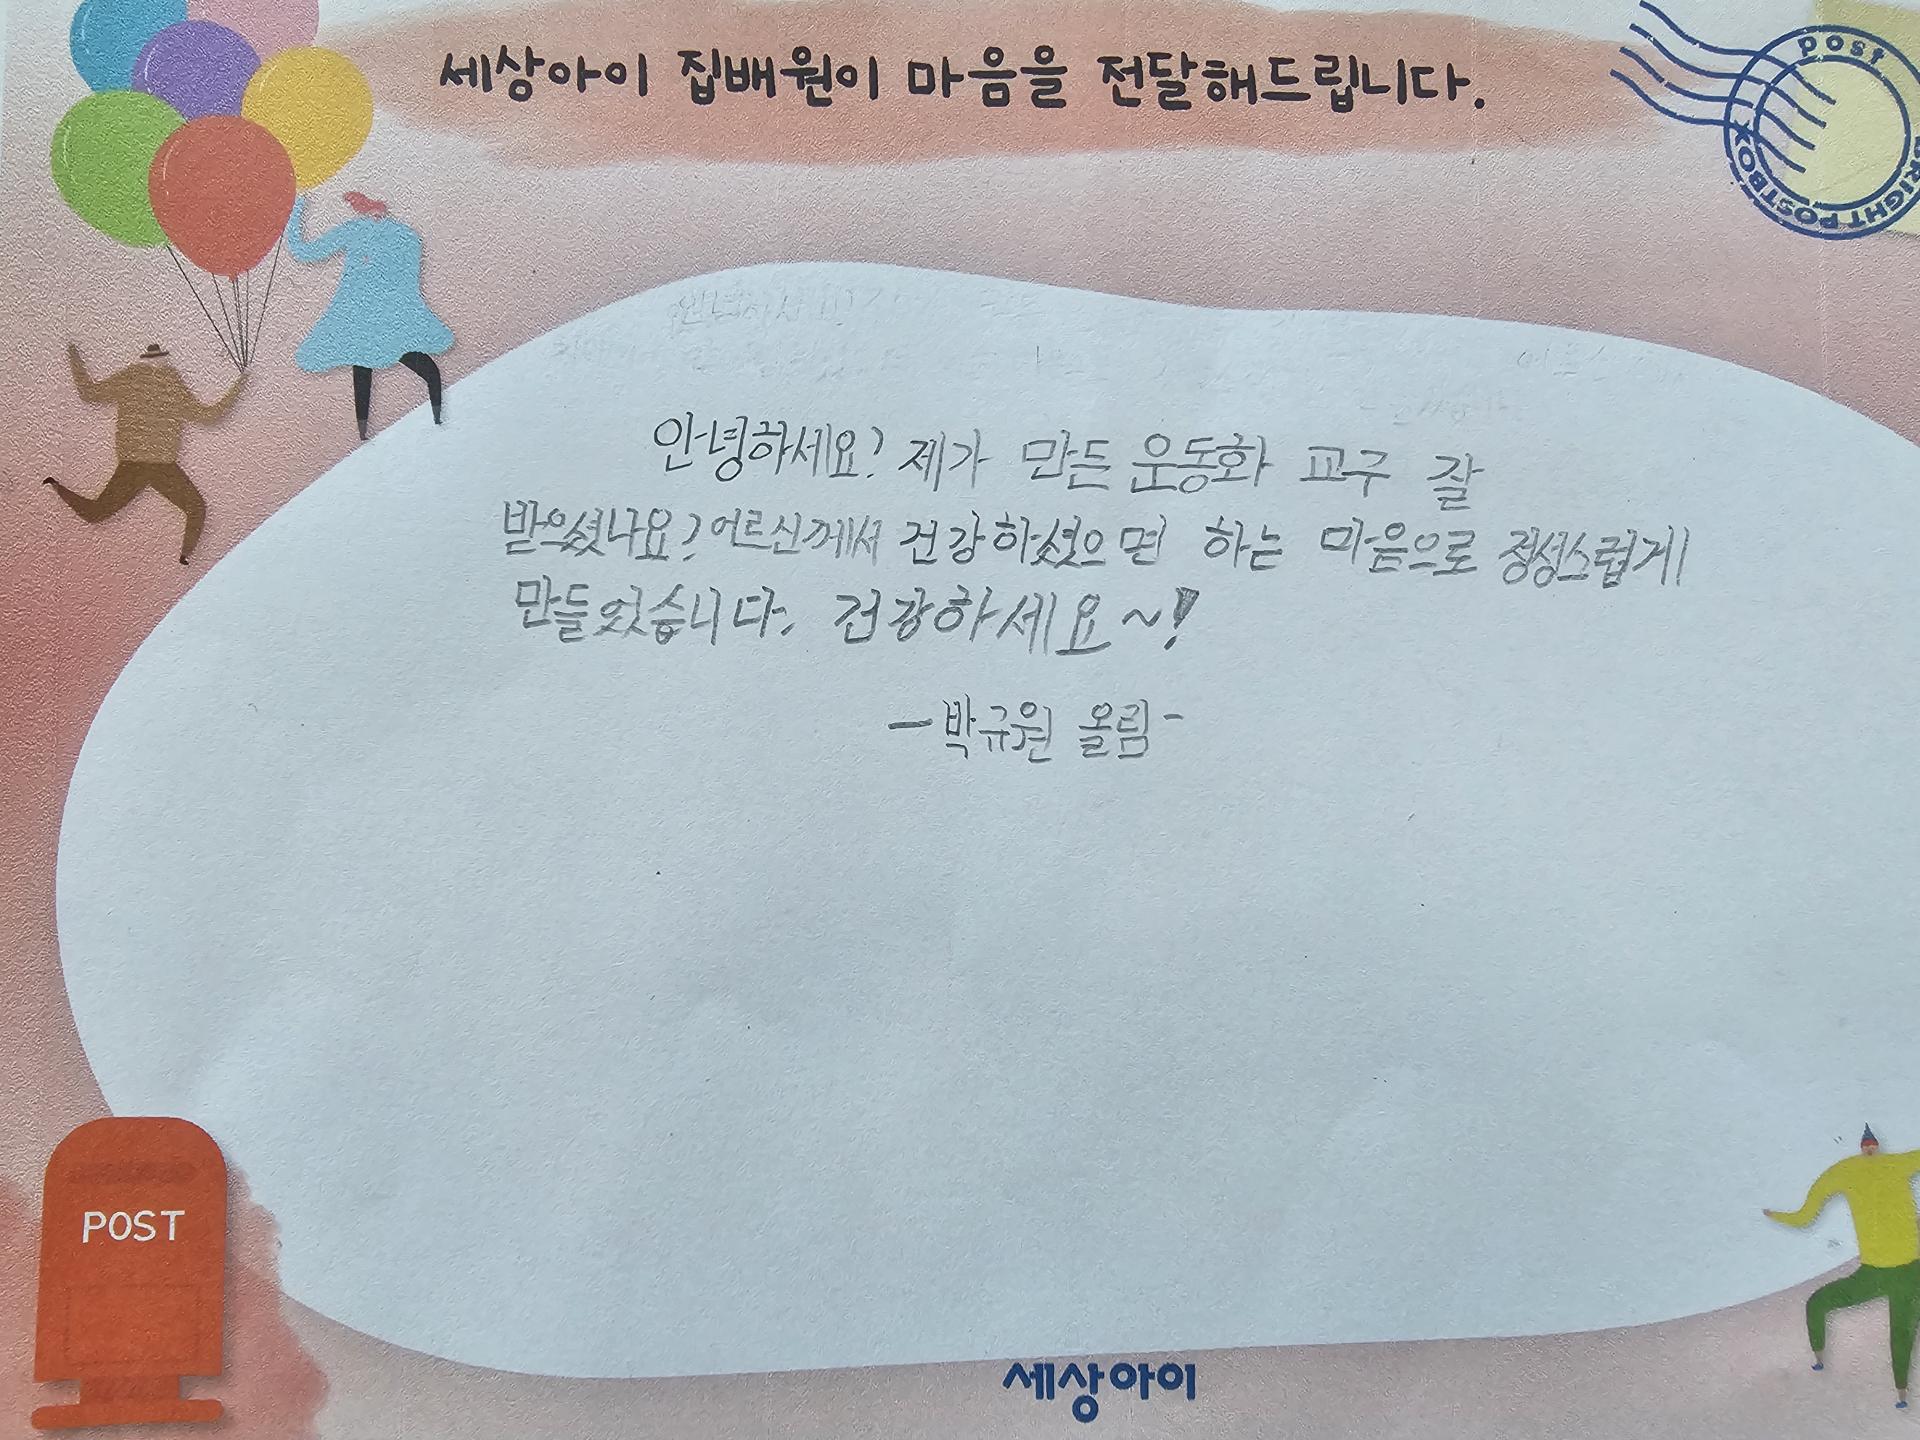 세상아이 집배원이 마음을 전달해드립니다.
post
BRIGHT POSTBOX
안녕하세요? 제가 만든 운동화 교구 잘
받으셨나요? 어르신께서 건강하셨으면 하는 마음으로 정성스럽게
만들었습니다. 건강하세요~!
-박규원 올림-
POST
세상아이